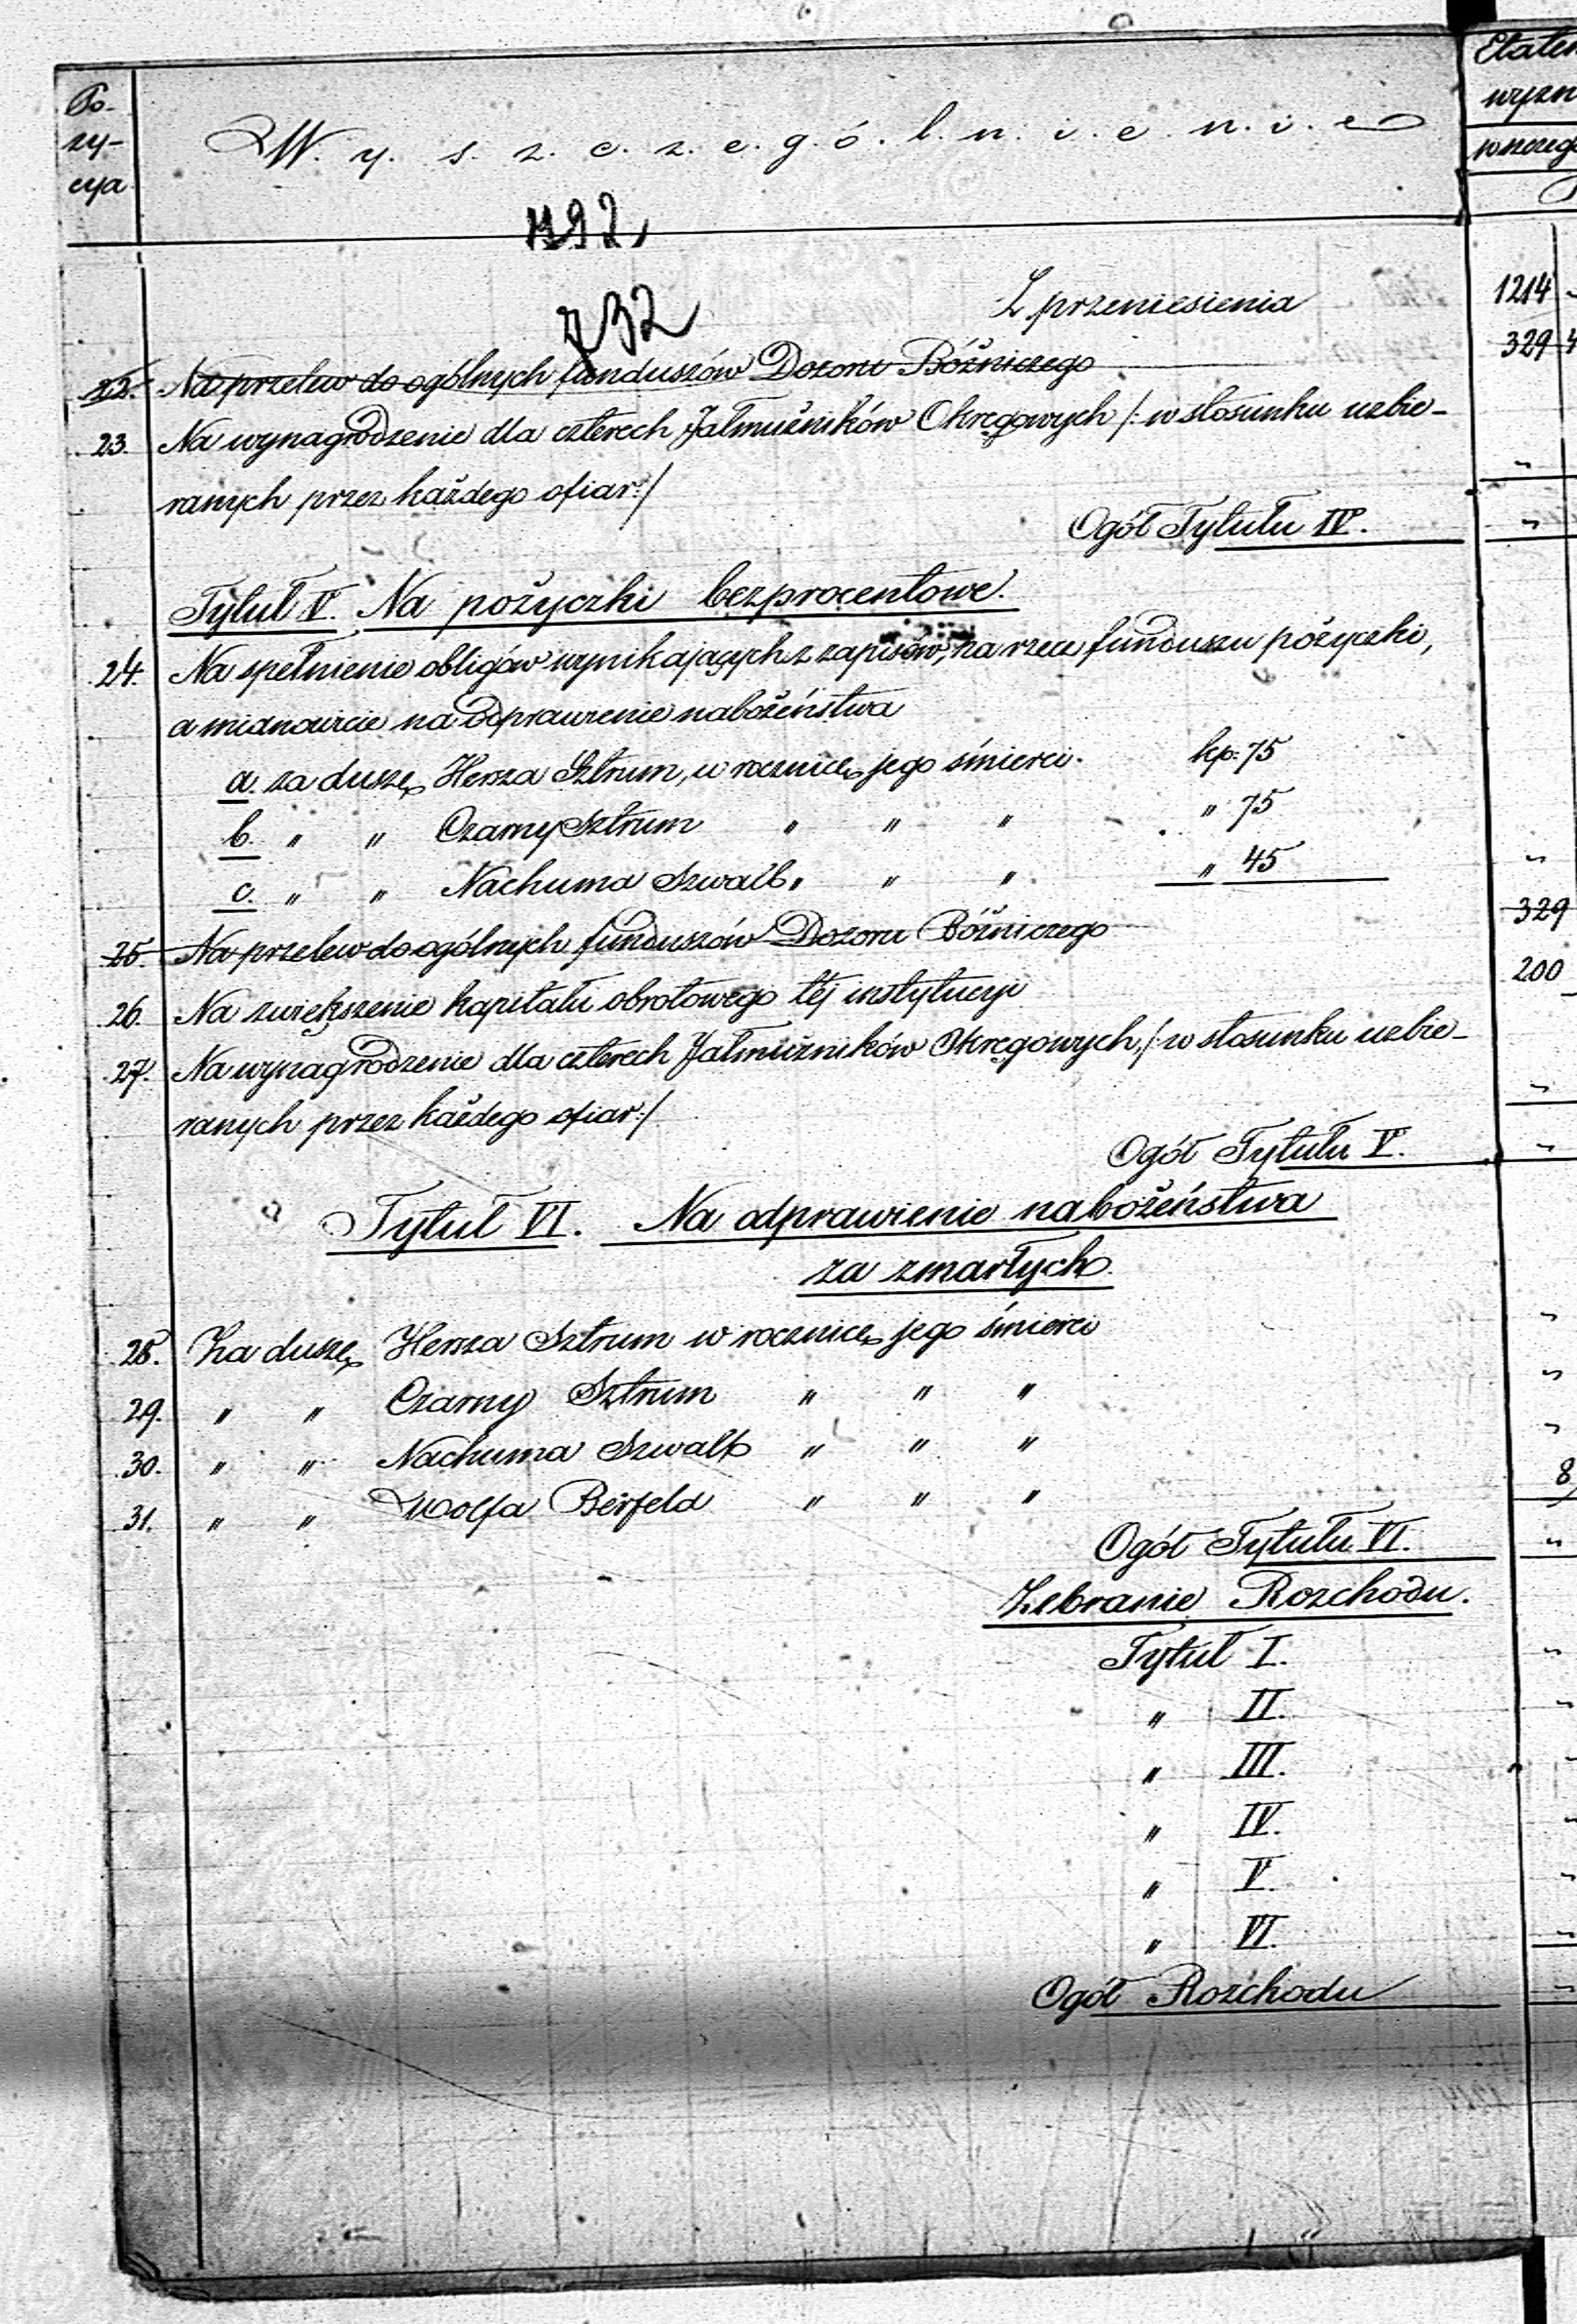 Po-
zy-
cya
W. y. s. z. c. z. e. g. ó. l. n. i. e. n. i. e
Etatem
wyzn
w szczegó
732
Z przeniesienia 1214
22. Na przelew do ogólnych funduszów Dozoru Bóżniczego 329 4
23. Na wynagrodzenie dla czterech Jałmużników Okręgowych /: w stosunku uzbie- "
ranych przez każdego ofiar:/
Ogół Tytułu IV. "
Tytuł V. Na pożyczki bezprocentowe.
24. Na spełnienie obligów wynikających z zapisów, na rzecz funduszu pożyczki,
a mianowicie na odprawienie nabożeństwa
a. za duszę Hersza Sztrum, w rocznicę jego śmierci. kp. 75
b. " " Czarny Sztrum " " " " 75
c. " " Nachuma Szwalb " " " " 45 "
25. Na przelew do ogólnych funduszów Dozoru Bóżniczego 329
26. Na zwiększenie kapitału obrotowego tej instytucyi 200
27. Na wynagrodzenie dla czterech Jałmużników Okręgowych, /: w stosunku uzbie-
ranych przez każdego ofiar:/ "
Ogół Tytułu V. "
Tytuł VI. Na odprawienie nabożeństwa
za zmarłych.
28. Za duszę Hersza Sztrum w rocznicę jego śmierci "
29. " " Czarny Sztrum " " " "
30. " " Nachuma Szwalb " " " "
31. " " Wolfa Berfeld " " " 8
Ogół Tytułu VI. "
Zebranie Rozchodu.
Tytuł I. "
" II. "
" III. "
" IV. "
" V. "
" VI. "
Ogół Rozchodu "